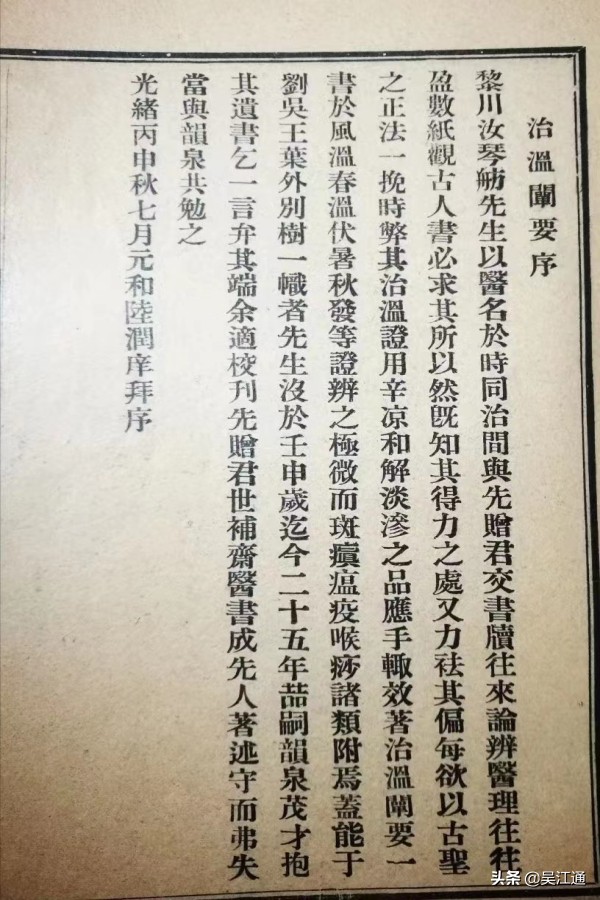 治溫闡要序
黎川汝琴舫先生以醫名於時同治間與先贈君交書牘往來論辨醫理往往
盈數紙觀古人書必求其所以然旣知其得力之處又力祛其偏每欲以古聖
之正法一挽時弊其治溫證用辛凉和解淡滲之品應手輙效著治溫闡要一
書於風溫春溫伏暑秋發等證辨之極微而斑㿗瘟疫喉痧諸類附焉蓋能于
劉吳王葉外別樹一幟者先生沒於壬申歲迄今二十五年喆嗣韻泉茂才抱
其遺書乞一言弁其端余適校刊先贈君世補齋醫書成先人著述守而弗失
當與韻泉共勉之
光緒丙申秋七月元和陸潤庠拜序
头条 @吴江通